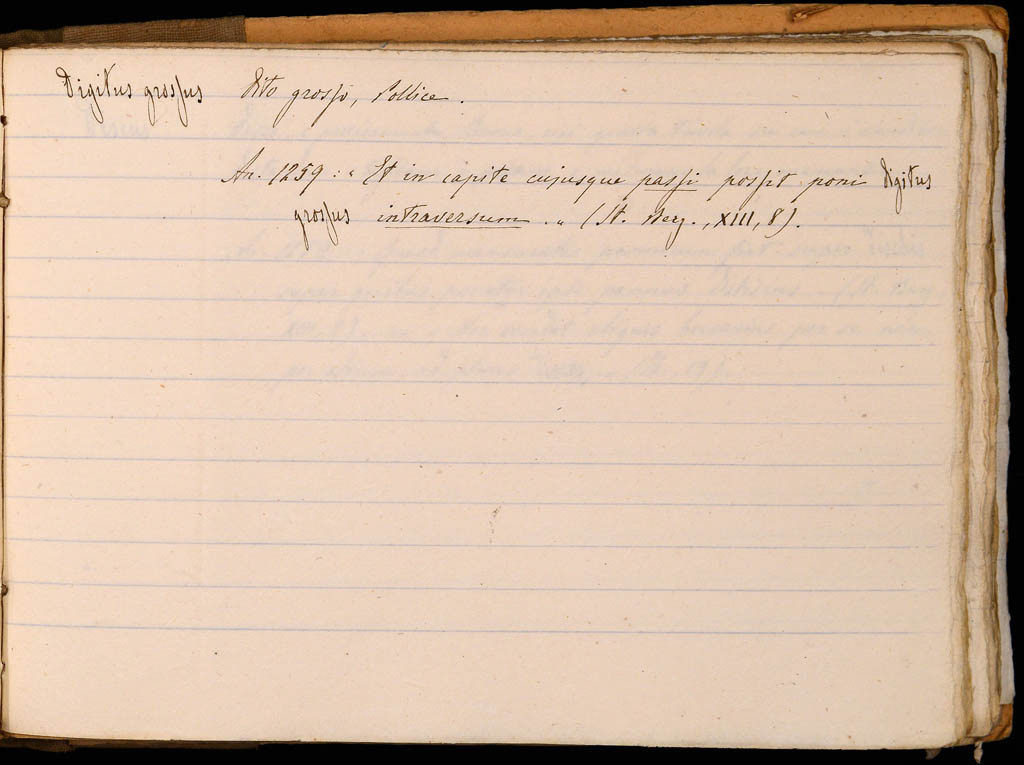 Digitus grossus Dito grosso, Pollice.
An. 1259: " Et in capite cujusque passi possit poni Digitus
grossus intraversum. " (St. Berg., XIII, 8).